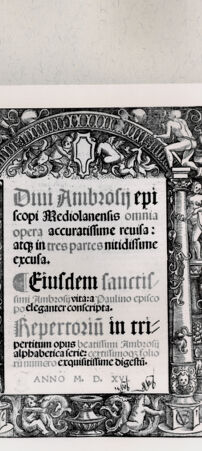 Diui Ambrosij epi
scopi Mediolanensis omnia
opera accuratissime reuisa:
atq̃ in tres partes nitidissime
excusa.
¶Eiusdem sanctis-
simi Ambrosij vita: a Paulino episco
po eleganter conscripta.
Repertoriũ in tri-
pertitum opus beatissimi Ambrosij
alphabetica serie: certissimoq̃ folio
rũ numero exquisitissime digestũ.
ANNO M. D. XVI.